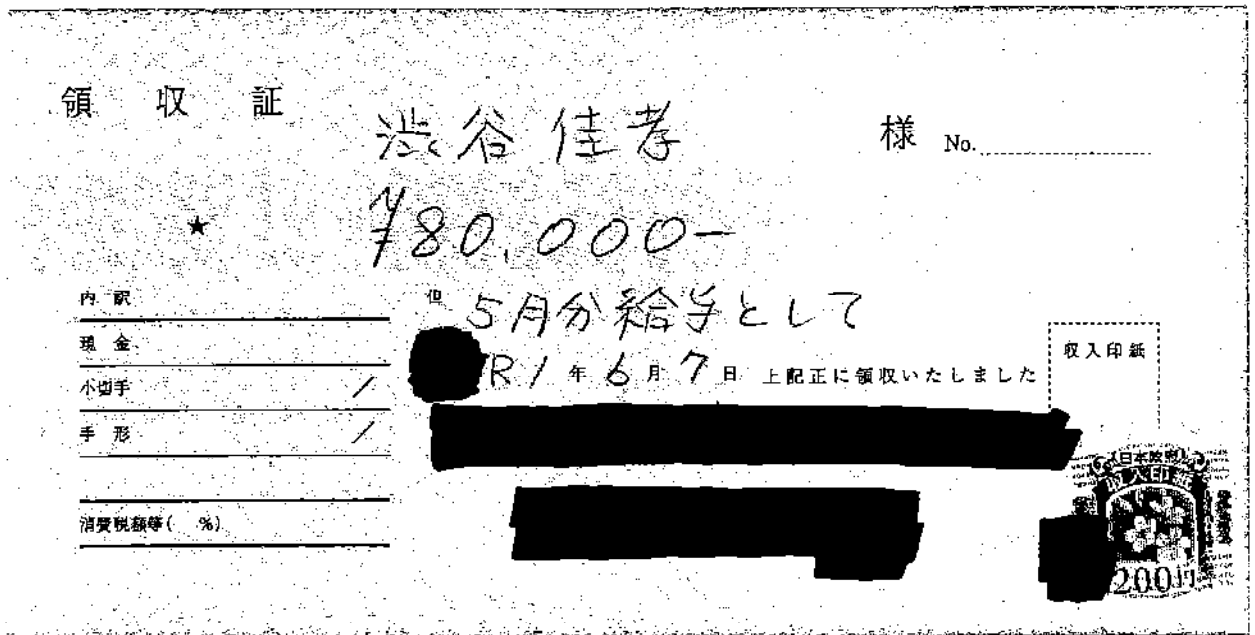 領収証
渋谷 佳孝 様 No.
★
¥80,000-
内訳
現金
小切手 /
手形 /
消費税額等( %)
但 5月分給与として
R1年6月7日 上記正に領収いたしました
収入印紙
日本政府
収入印紙
200円